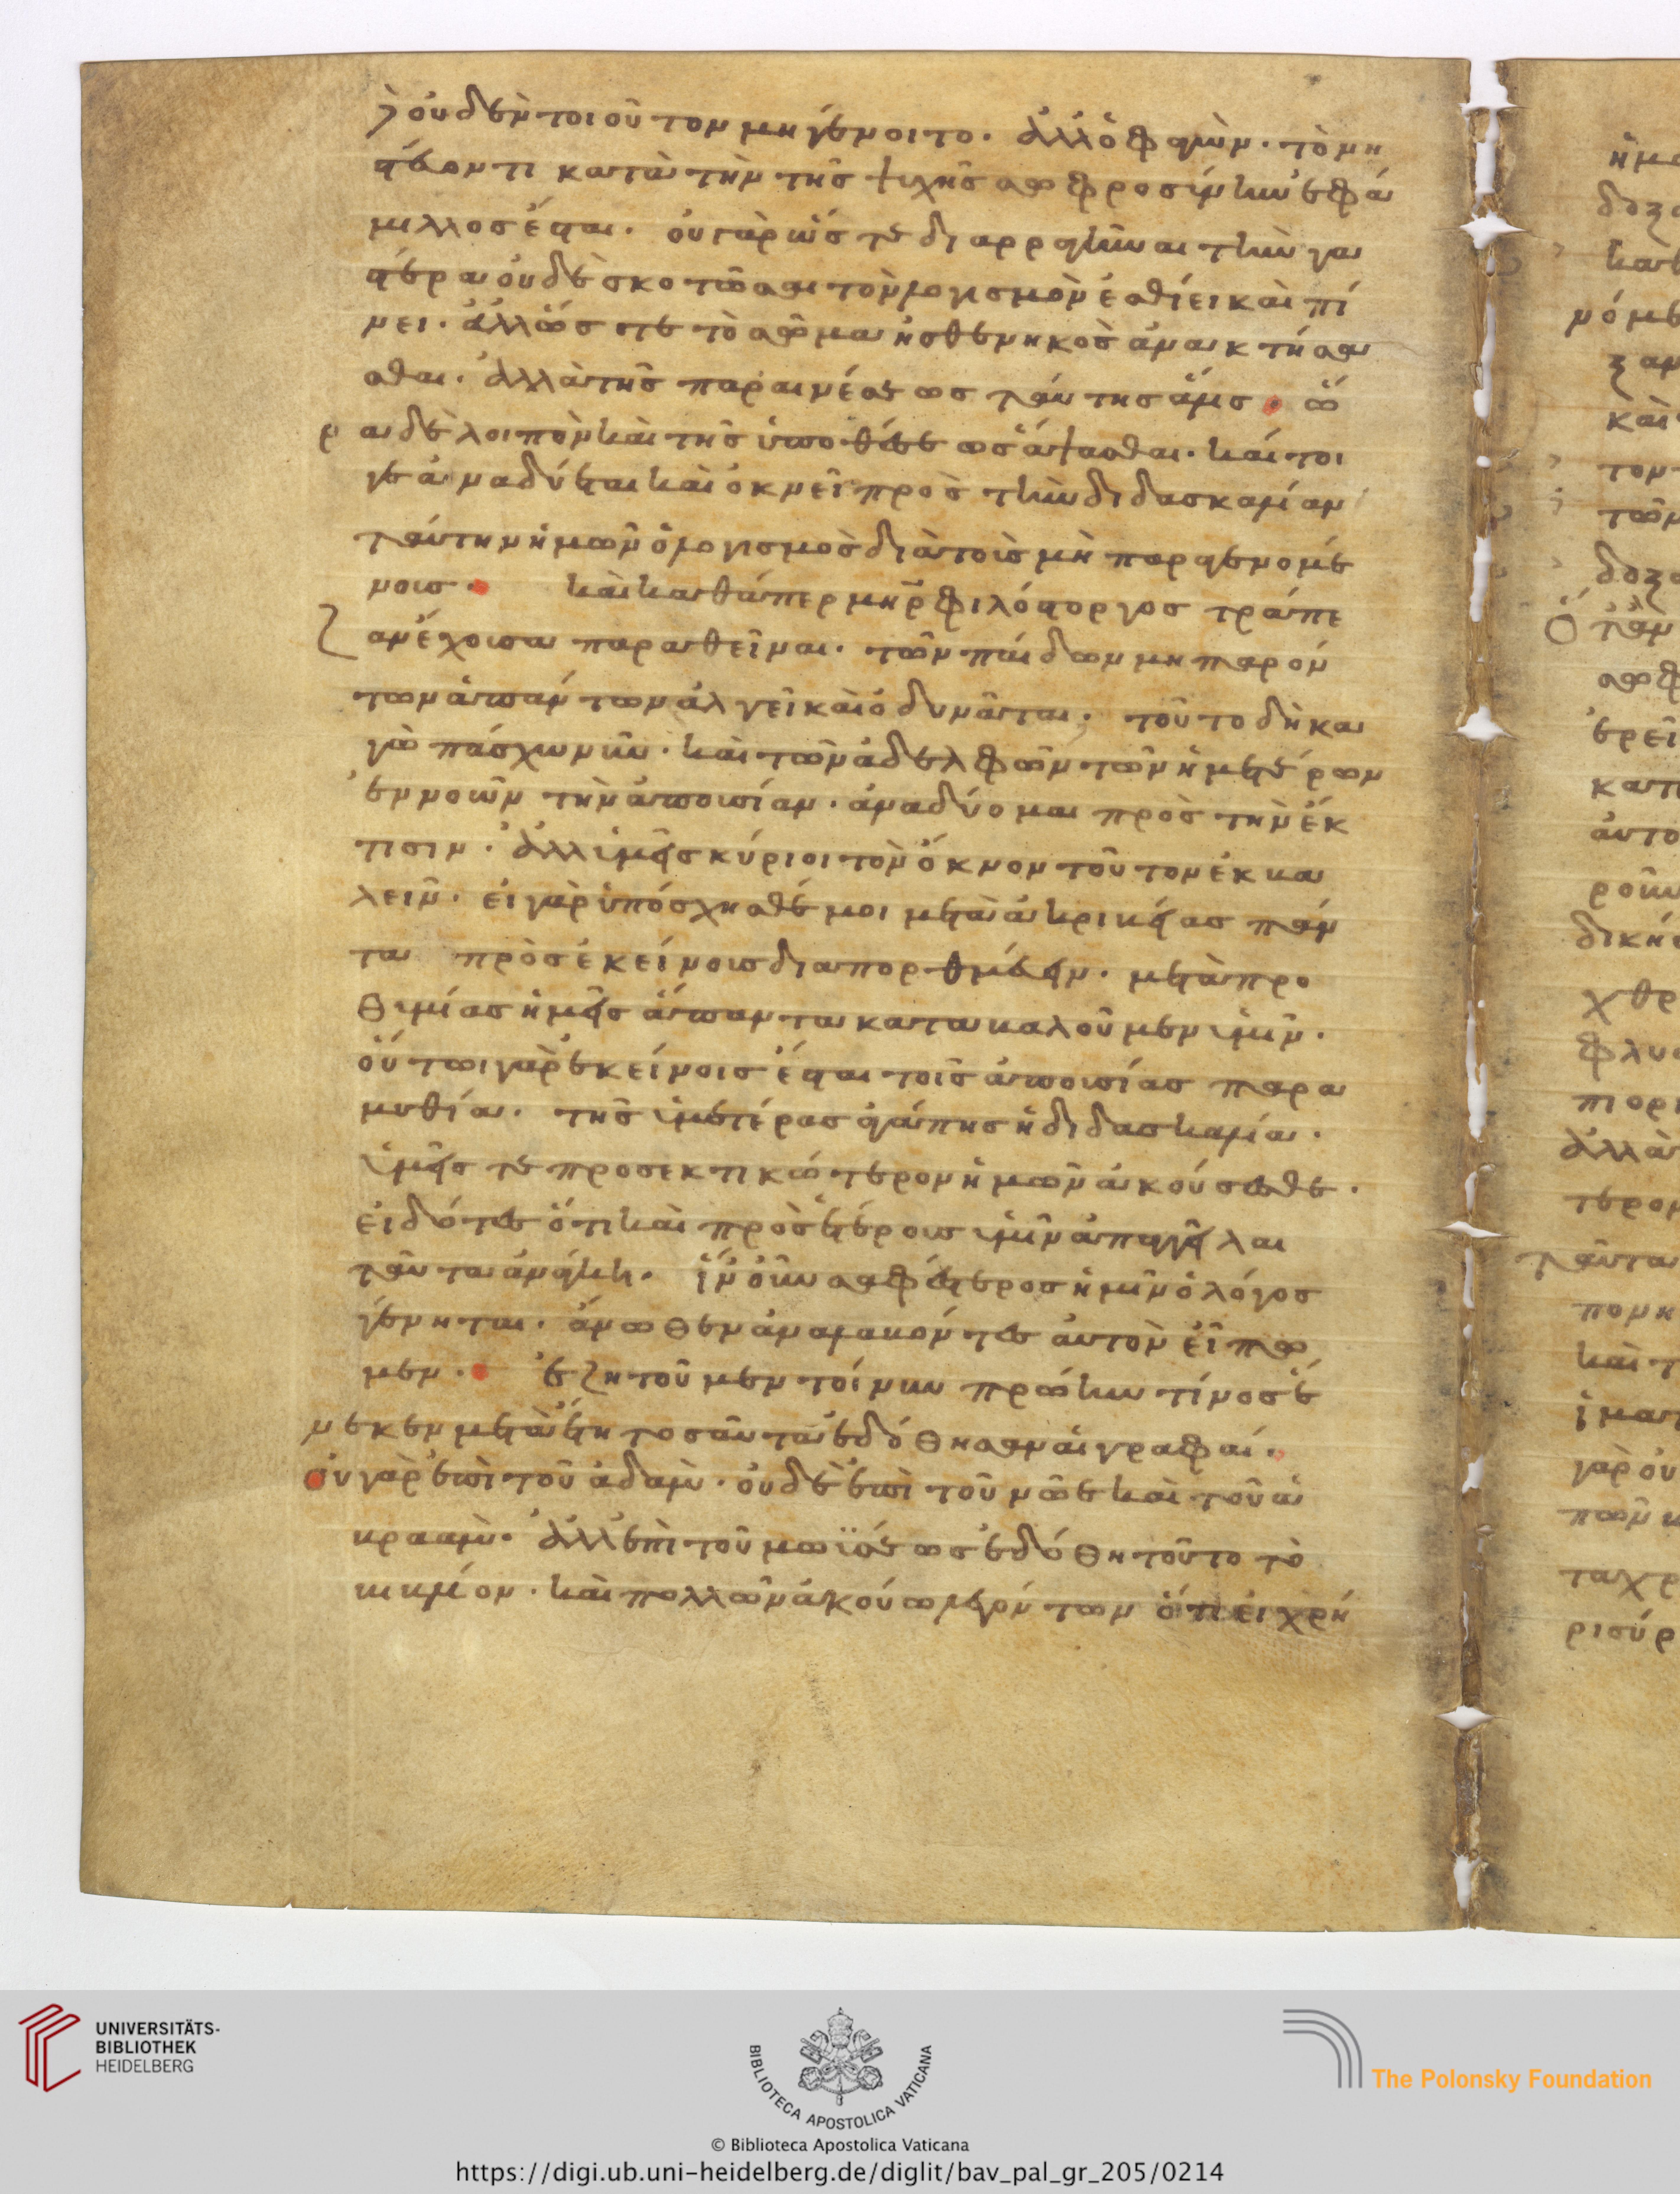 οὐδὲν τοιοῦτον μὴ γένοιτο. ἀλλ' ὁ φαγὼν. τὸ μὴ
πέσοντι κατὰ τὴν τῆς ψυχῆς σωφροσύνην ἐφά
μιλλος ἔσται. οὐ γὰρ ὥστε διαρραγῆναι τὴν γα
στέρα οὐδὲ σκοτῶσαι τὸν λογισμὸν ἐσθίει καὶ πί
νει. ἀλλ' ὥστε τὸ σῶμα ἠσθενηκὸς ἀνακτήσα
σθαι. ἀλλὰ τῆς παραινέσεως ταύτης ἅλις. ὥ
ρα δὲ λοιπὸν καὶ τῆς ὑποθέσεως ἅψασθαι. καίτοι
γε ἀναδύεται καὶ ὀκνεῖ πρὸς τὴν διδασκαλίαν
ταύτην ἡμῶν ὁ λογισμὸς διὰ τοὺς μὴ παραγενομέ
νους. καὶ καθάπερ μηρ φιλόστοργος τράπε
ζαν ἔχουσα παραθεῖναι. τῶν παίδων μὴ παρόν
των ἁπάντων ἀλγεῖ καὶ ὀδυνᾶται. τοῦτο δὴ κα
γὼ πάσχω νῦν. καὶ τῶν ἀδελφῶν τῶν ἡμετέρων
ἐννοῶν τὴν ἀπουσίαν. ἀναδύομαι πρὸς τὴν ἔκ
τισιν. ἀλλ' ὑμεῖς κύριοι τὸν ὄκνον τοῦτον ἐκβα
λεῖν. εἰ γὰρ ὑπόσχησθέ μοι μετὰ ἀκριβείας πάν
τα πρὸς ἐκείνους διαπορθμεύειν. μετὰ προ
θυμίας ἡμεῖς ἅπαντα καταβαλοῦμεν ὑμῖν.
οὕτω γὰρ ἐκείνοις ἔσται τοῖς ἀπουσίας παρα
μυθία. τῆς ὑμετέρας ἀγάπης ἡ διδασκαλία.
ὑμεῖς τε προσεκτικώτερον ἡμῶν ἀκούσεσθε.
εἰδότες ὅτι καὶ πρὸς ἑτέρους ὑμῖν ἀπαγγεῖλαι
ταῦτα ἀνάγκη. ἵν' οὖν σαφέστερος ἡμῖν ὁ λόγος
γένηται. ἄνωθεν ἀναλαβόντες αὐτὸν εἴπω
μεν. ἐζητοῦμεν τοίνυν πρώην τίνος ἕ
νεκεν μετὰ ἔτη τοσαῦτα ἐδόθησαν αἱ γραφαί.
οὐ γὰρ ἐπὶ τοῦ ἀδὰμ. οὐδὲ ἐπὶ τοῦ νῶε καὶ τοῦ ἀ
βραὰμ. ἀλλ' ἐπὶ τοῦ μωϋσέως ἐδόθη τοῦτο τὸ
βιβλίον. καὶ πολλῶν ἀκούω λεγόντων ὅτι εἰ χρή
UNIVERSITÄTS-
BIBLIOTHEK
HEIDELBERG
BIBLIOTECA APOSTOLICA VATICANA
The Polonsky Foundation
© Biblioteca Apostolica Vaticana
https://digi.ub.uni-heidelberg.de/diglit/bav_pal_gr_205/0214